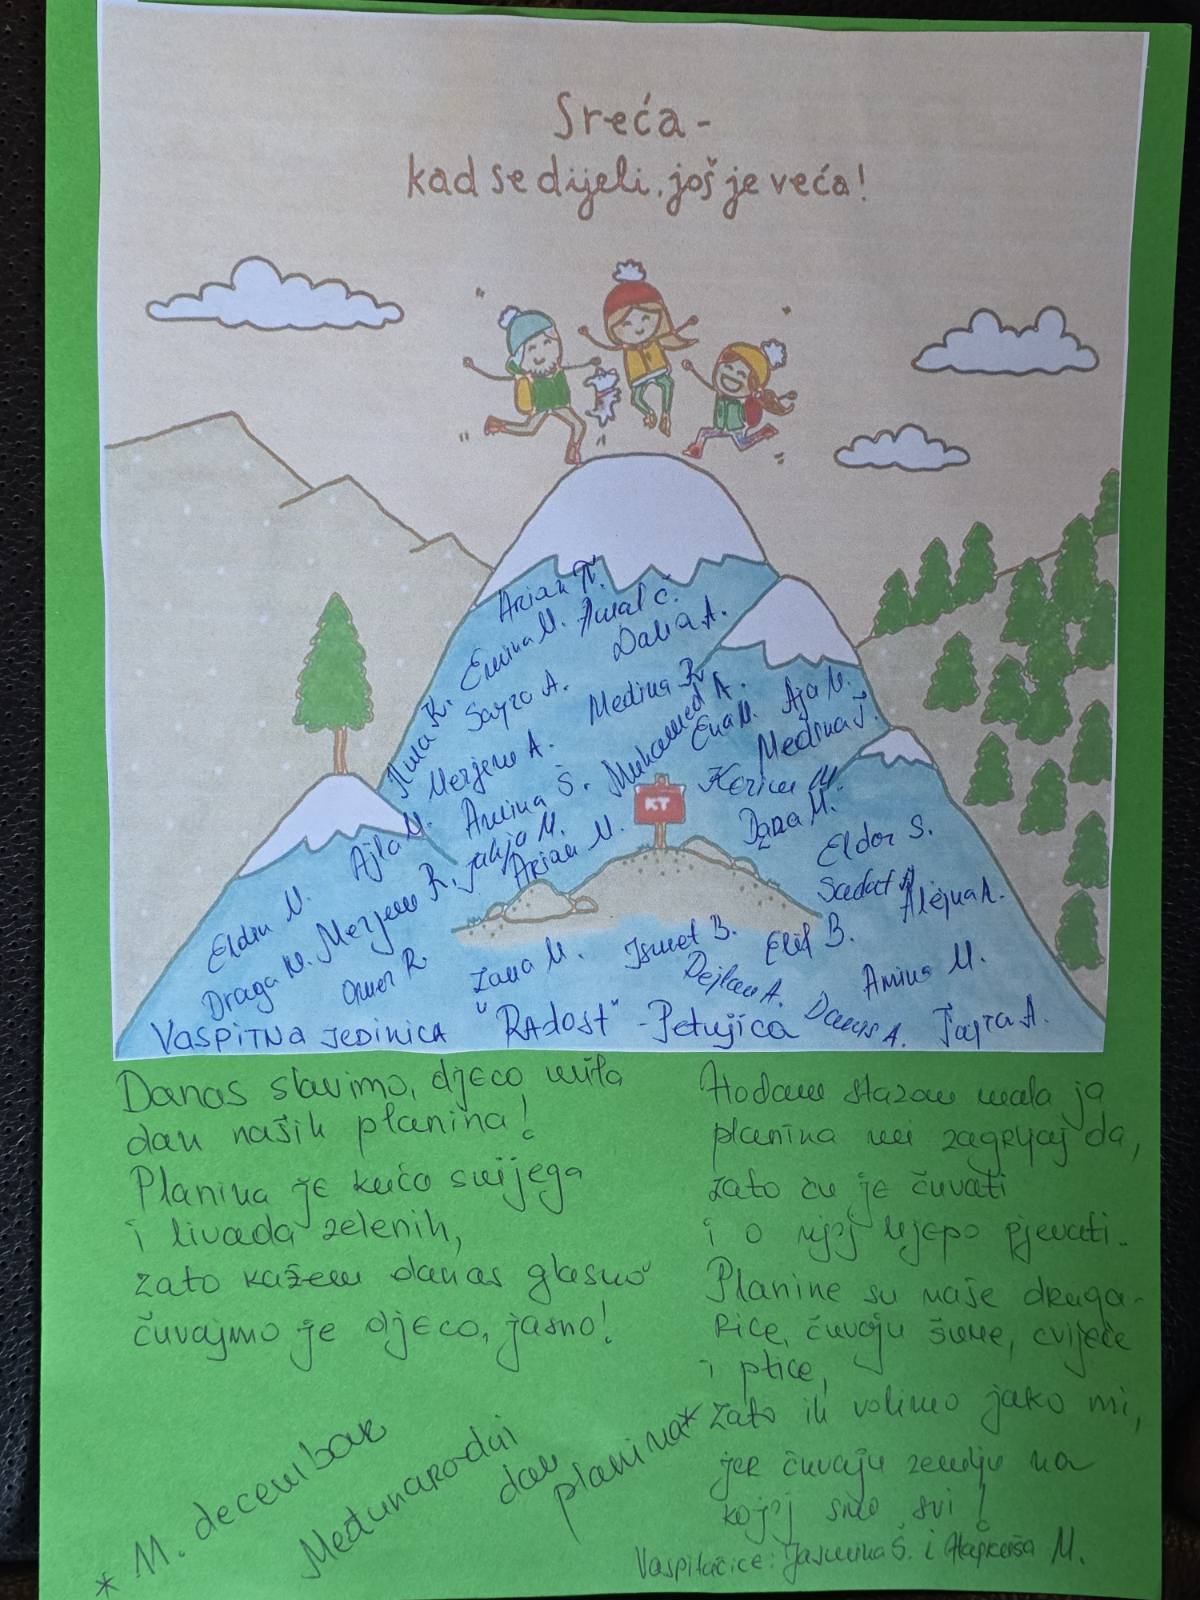 Sreća -
kad se dijeli, još je veća!
Arian T.
Emina M. Amal Č.
Dalia A.
Ilma K. Sajra A. Medina R.
Merjem A. Muhamed A. Ena M. Aja M.
Medina J.
Ajla M. Amina Š. Kerim M.
KT
Jahja M. Arian M. Džana M.
Eldin N. Merjem R. Eldor S.
Sadat A. Alejna A.
Draga N. Omer R. Zana M. Ismet B. Elif B.
Dejlan A. Amina M.
VASPITNA JEDINICA "RADOST" - Petnjica Danis A. Tajra A.
Danas slavimo, djeco mila
dan naših planina!
Planina je kuća snijega
i livada zelenih,
zato kažem danas glasno
čuvajmo je djeco, jasno!
Hodam stazom mala ja
planina mi zagrljaj da,
zato ću je čuvati
i o njoj lijepo pjevati.
Planine su naše druga-
rice, čuvaju šume, cvijeće
i ptice,
zato ih volimo jako mi,
jer čuvaju zemlju na
kojoj smo svi!
* 11. decembar
Međunarodni
dan
planina*
Vaspitačice: Jasmina Š. i M.